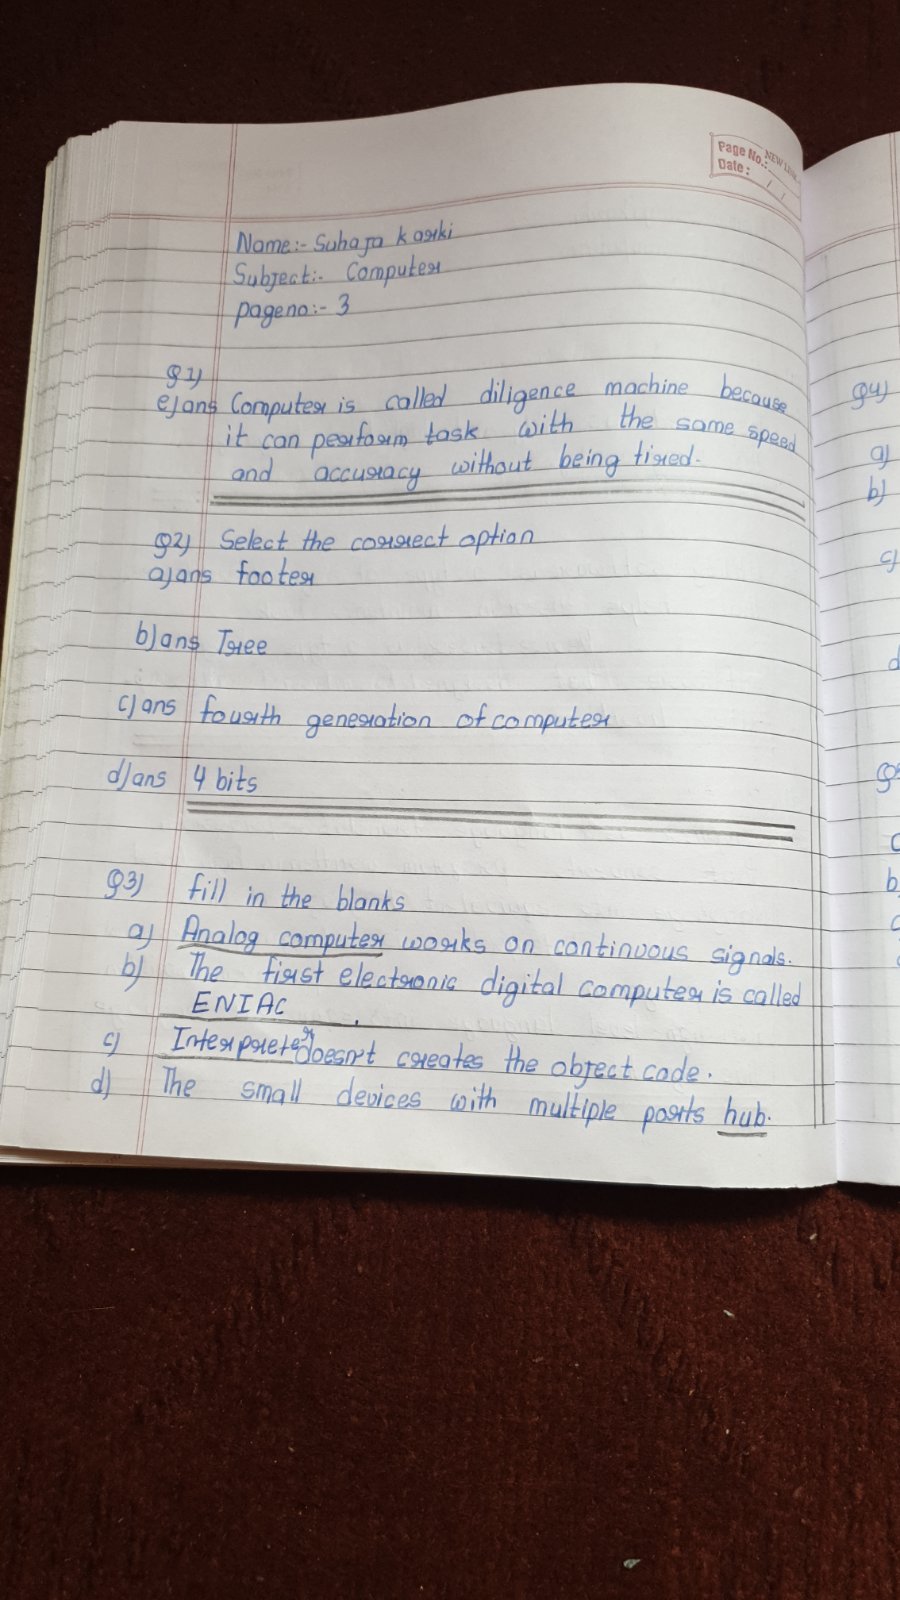 Page No.: NEW
Date: / /
Name:- Suhaja Karki
Subject:- Computer
pageno:- 3
Q1)
e) ans Computer is called diligence machine because
it can perform task with the same speed
and accuracy without being tired.
Q2) Select the correct option
a) ans footer
b) ans Tree
c) ans fourth generation of computer
d) ans 4 bits
Q3) fill in the blanks
a) Analog computer works on continuous signals.
b) The first electronic digital computer is called
ENIAC.
c) Interpreter doesn't creates the object code.
d) The small devices with multiple ports hub.
Q4)
a)
b)
c)
d
b